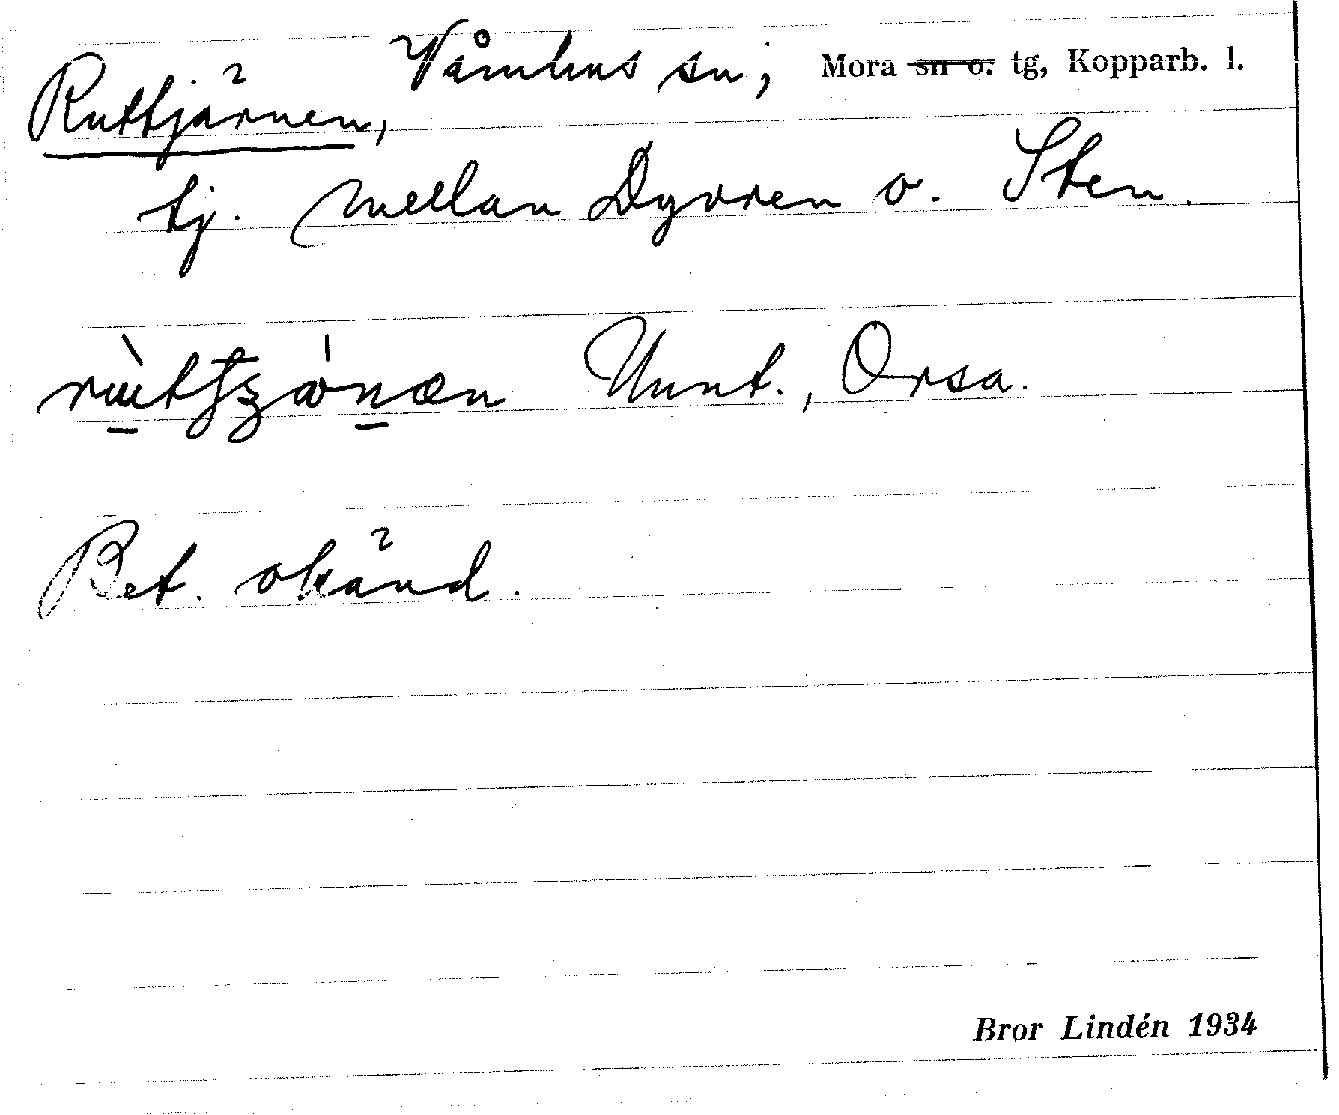 Våmhus sn, Mora sn o. tg, Kopparb. l.
Ruttjärnen,
tj. mellan Dyvren o. Sten.
Unnt., Orsa.
Bet. okänd.
Bror Lindén 1934